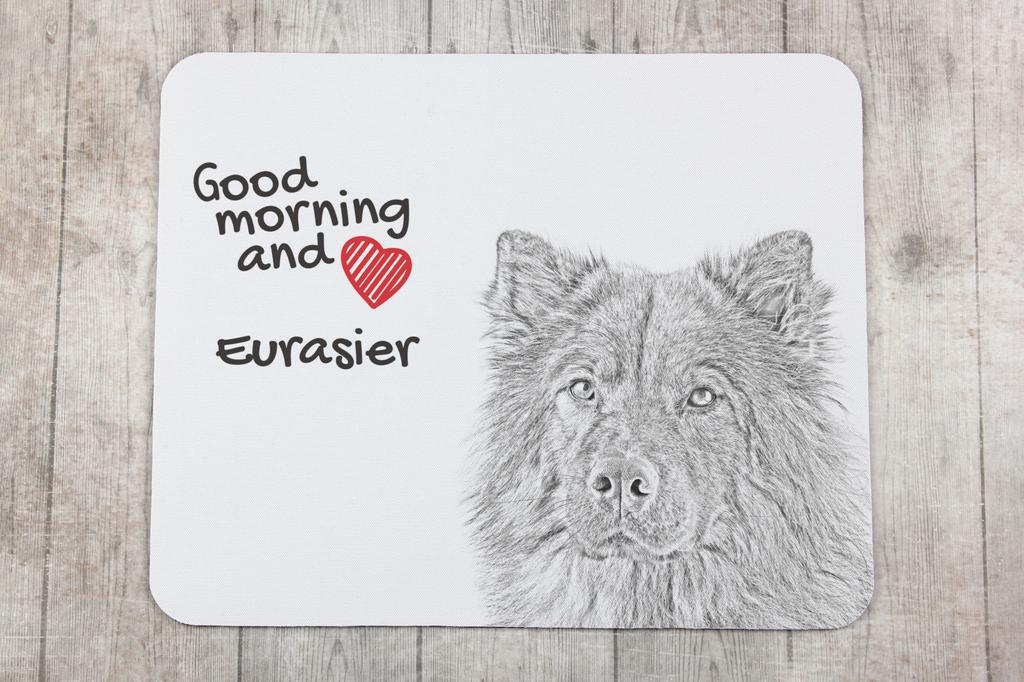 Good
morning
and
Eurasier